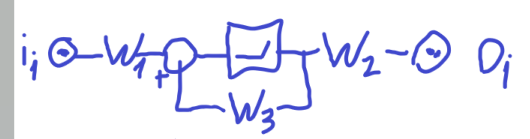 i₁ W₁ W₂ O₁
+
W₃